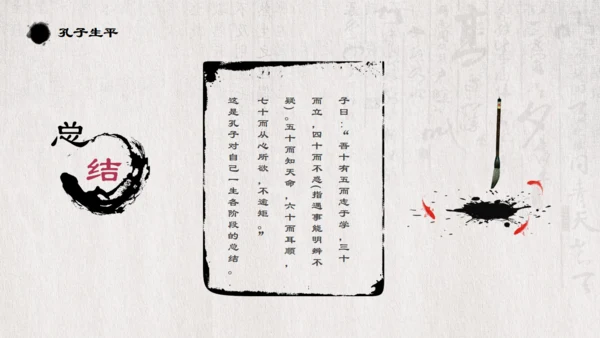 孔子生平
总
结
子曰:“吾十有五而志于学,三十
而立,四十而不惑(指遇事能明辨不
疑)。五十而知天命,六十而耳顺,
七十而从心所欲,不逾矩。”
这是孔子对自己一生各阶段的总结。